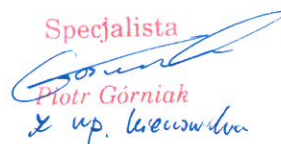 Specjalista
Piotr Górniak
z up. kierownika